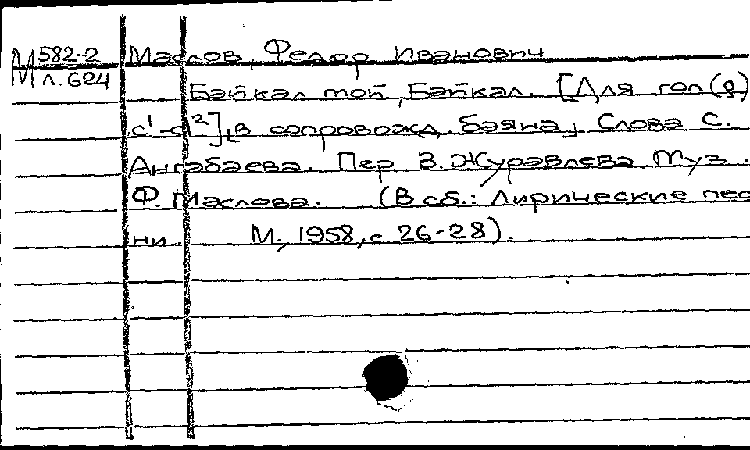 М 582-2 Маслов, Федор Иванович
М л. 624
Байкал мой, Байкал. [Для гол(а)
c¹-d²] в сопровожд. баяна, Слова С.
Ангабаева. Пер. В. Журавлева Муз.
Ф. Маслова. (В сб.: Лирические пес
ни. М., 1958, с 26-28).